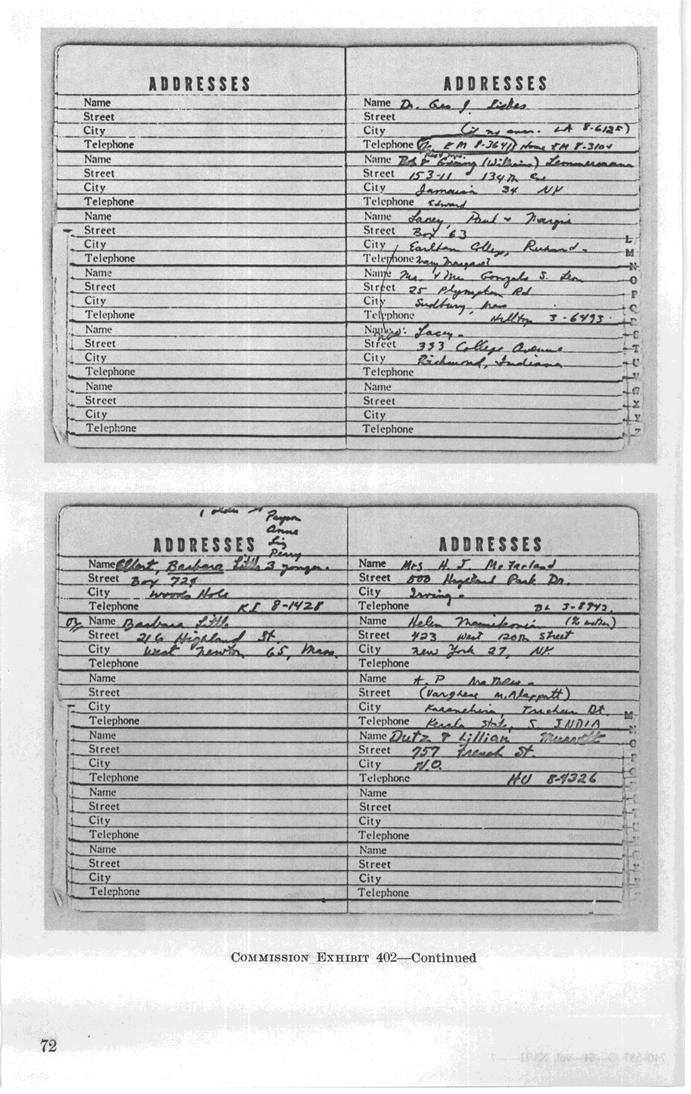 ADDRESSES
Name
Street
City
Telephone
Name
Street
City
Telephone
Name
Street
City
Telephone
Name
Street
City
Telephone
Name
Street
City
Telephone
Name
Street
City
Telephone
ADDRESSES
Name Dr. Geo J.
Street
City (if no answ. LA 8-6125)
Telephone EM 8-3641) Home EM 8-3104
Name (Wilkins) Lemmerman
Street 153-11 134th
City Jamaica 34 NY
Telephone Edward
Name Lacey, Paul + Margie
Street Box 63
City Earlham College, Richmond
Telephone Mary Margaret
Name Mr. & Mrs Gonzalo S. Leon
Street 25 Plympton Rd
City Sudbury, Mass
Telephone Hilltop 3-6493
Name Lacey
Street 393 College Avenue
City Richmond, Indiana
Telephone
Name
Street
City
Telephone
L
M
N
O
P
Q
T
U
V
X
Y
Z
1 older
Anne
Liz
Perry
ADDRESSES
Name Barbara Little 3 younger
Street Box 729
City Woods Hole
Telephone KI 8-1428
or Name Barbara Little
Street 216 Highland St.
City West Newton 65, Mass.
Telephone
Name
Street
City
Telephone
Name
Street
City
Telephone
Name
Street
City
Telephone
Name
Street
City
Telephone
ADDRESSES
Name Mrs H. J. McFarland
Street Park Dr.
City Irving
Telephone BL 3-8942
Name Helen
Street 423 West 120th Street
City New York 27, NY
Telephone
Name A. P
Street (Varghese
City Trichur Dt.
Telephone Kerala State, S. INDIA
Name Dutz & Lillian
Street 757 French St.
City N.O.
Telephone HU 8-4326
Name
Street
City
Telephone
Name
Street
City
Telephone
M
COMMISSION EXHIBIT 402—Continued
72